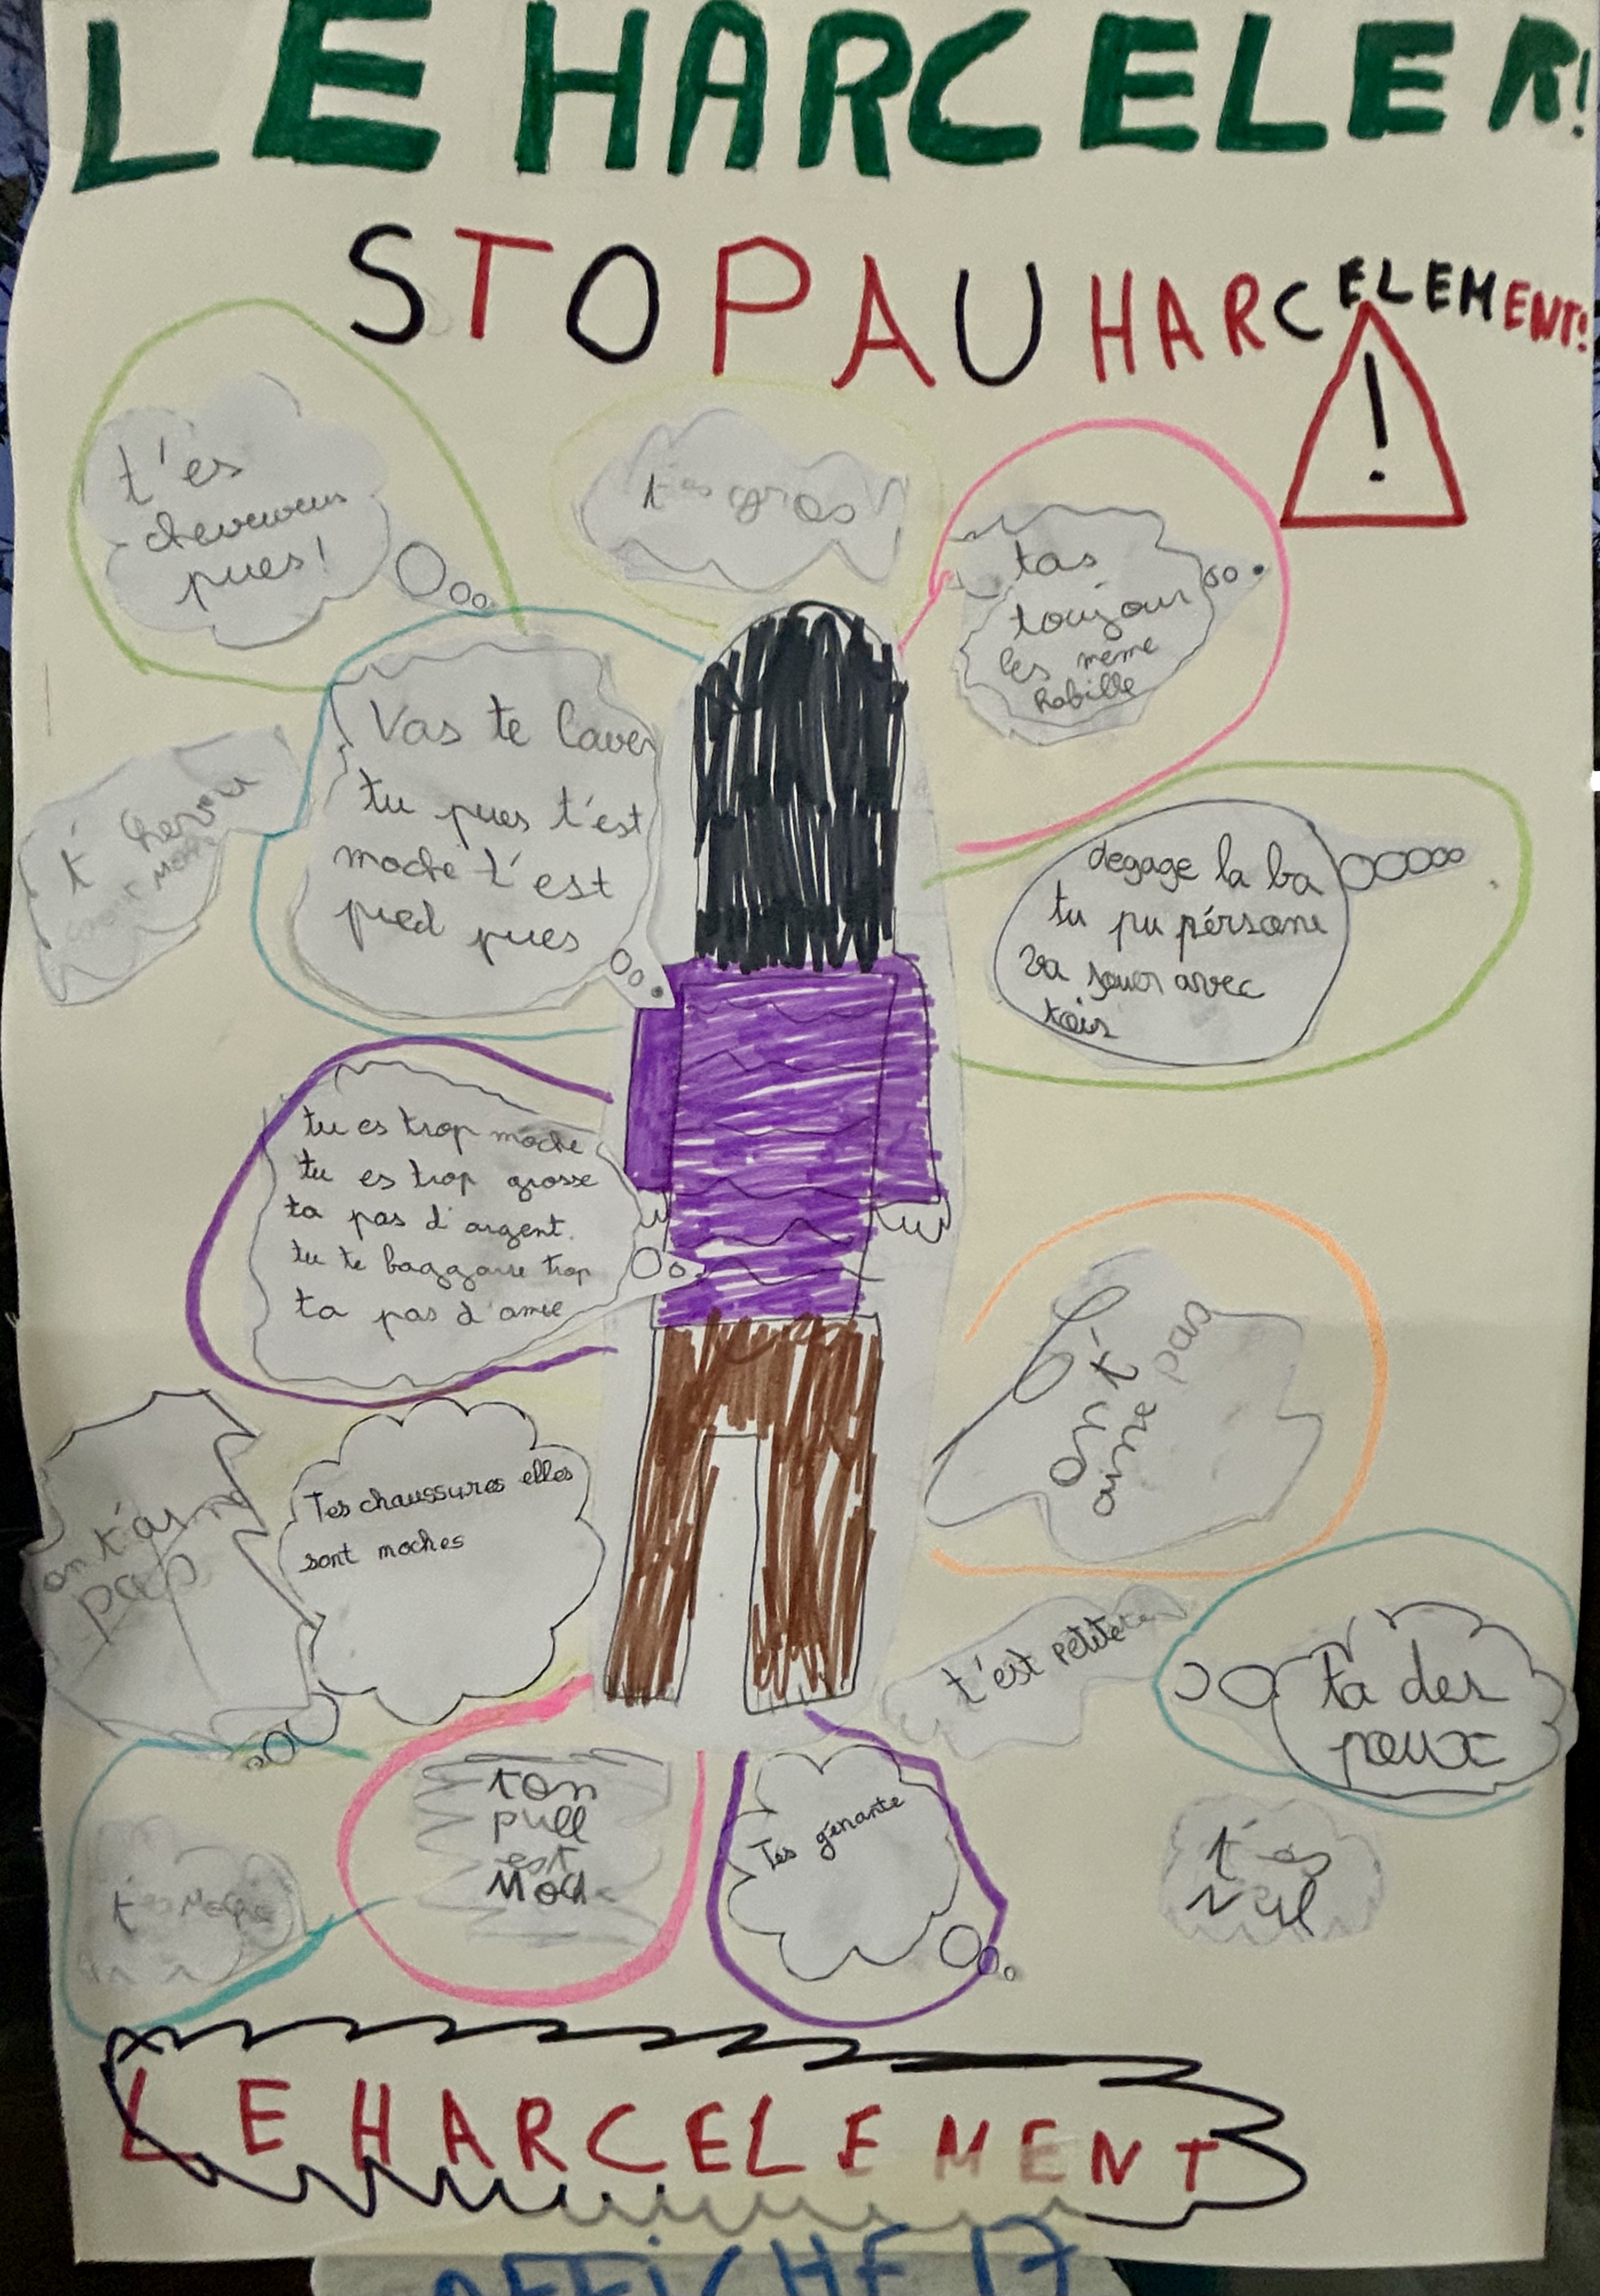 LE HARCELER!
STOP AU HARCELEMENT!
!
t'es
cheveveus
pues!
t'es gros
tas
toujour
les même
habille
Vas te laver
tu pues t'est
moche t'est
pied pues
t'
degage la ba
tu pu pérsone
va jouer avec
tois
tu es trop moche
tu es trop grosse
ta pas d'argent.
tu te baggarre trop
ta pas d'amie
on t'
aime pas
on t'aime
pas
Tes chaussures elles
sont moches
t'est petite
ta des
poux
ton
pull
est
Moche
Tes gênante
t'es
nul
t'es Moche
LE HARCELEMENT
AFFICHE 17